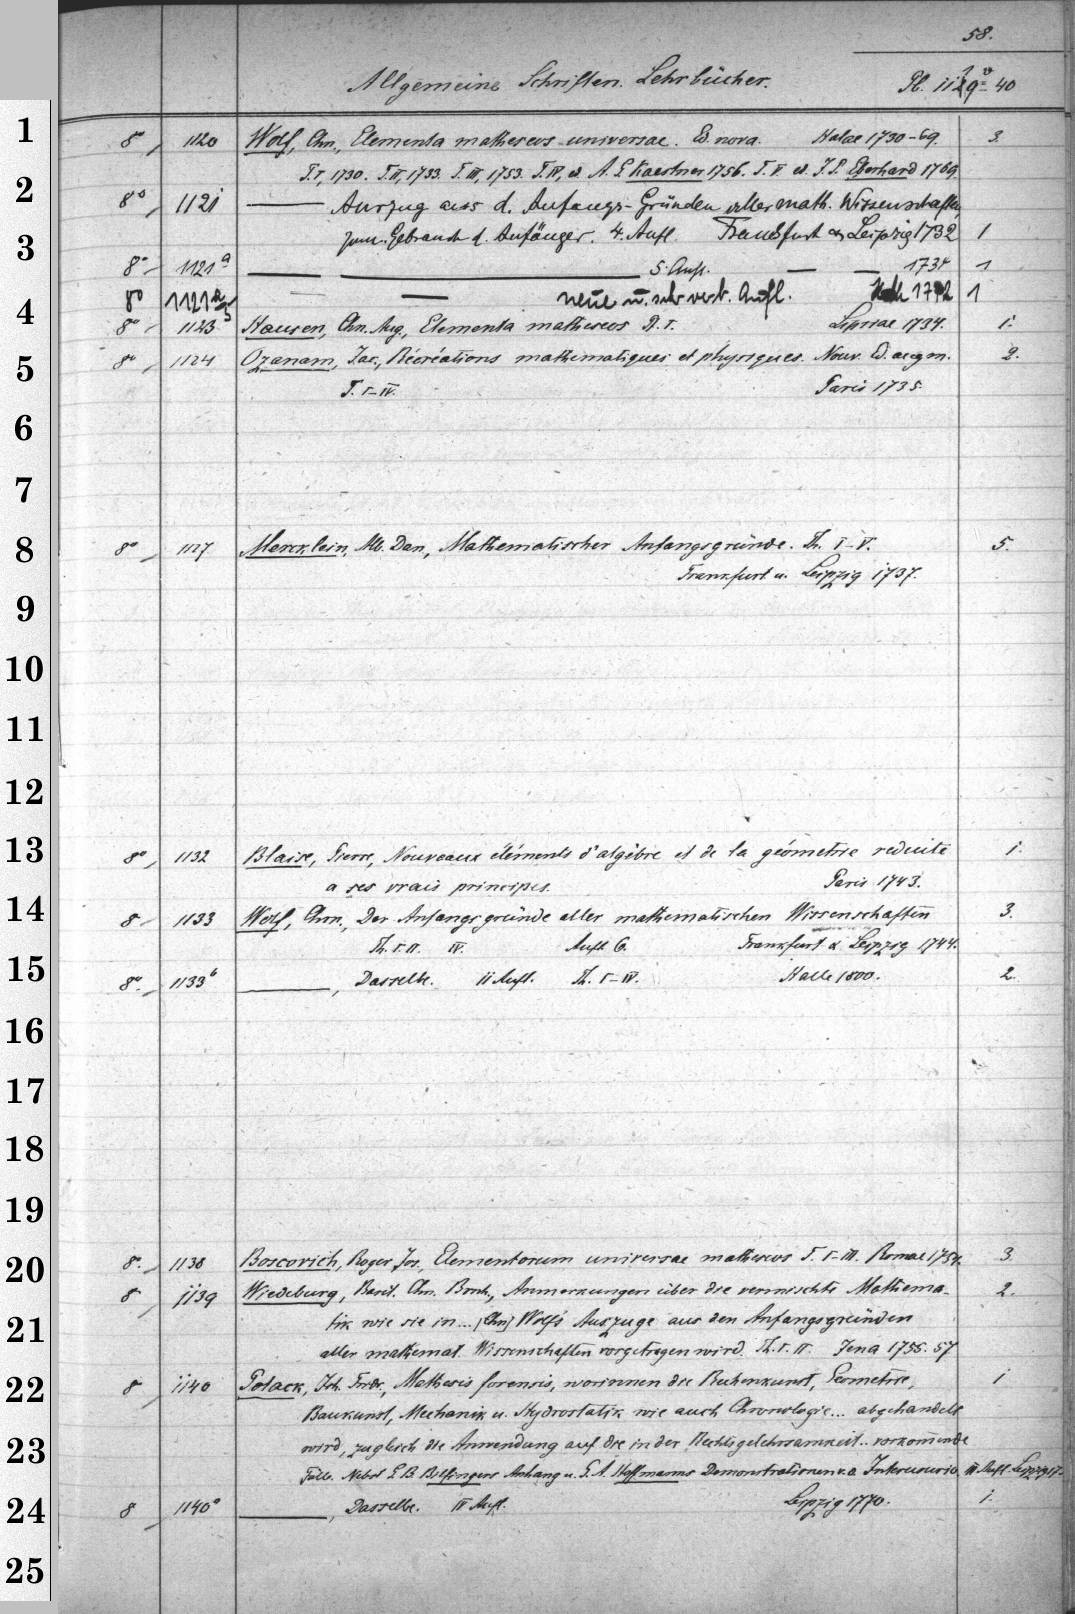 58.
Allgemeine Schriften. Lehrbücher. Pl. 40
1
8° 1120 Wolf, Chn., Elementa matheseos universae. Ed. nova. Halae 1730-69. 3.
T. I, 1730. T. II, 1733. T. III, 1753. T. IV, ed. A. G. Kaestner 1756. T. V ed. J. P. Eberhard 1769
2
8° 1121 Auszug aus d. Anfangs-Gründen aller math. Wissenschaften,
3
zum Gebrauch d. Anfänger. 4. Aufl. Frankfurt u. Leipzig 1732 1
8° 1121a 5. Aufl. 1734 1
8° 1121 neue u. sehr verb. Aufl. 1
4
8° 1123 Hausen, Chn. Aug., Elementa matheseos P. I. Lipsiae 1734. 1.
5
8° 1124 Ozanam, Jac., Récréations mathématiques et physiques. Nouv. éd. augm. 2.
T. I-IV. Paris 1735.
6
7
8
8° 1127 Mercklein, Alb. Dan., Mathematischer Anfangsgründe. Th. I-V. 5.
Frankfurt u. Leipzig 1737.
9
10
11
12
13
8° 1132 Blaise, Pierre, Nouveaux éléments d'algèbre et de la géometrie reduite 1.
a ses vrais principes. Paris 1743.
14
8 1133 Wolf, Chrn., Der Anfangsgründe aller mathematischen Wissenschaften 3.
Th. I. II. IV. Aufl. 6. Frankfurt u. Leipzig 1744.
15
8° 1133b Dasselbe. 11 Aufl. Th. I-IV. Halle 1800. 2.
16
17
18
19
20
8° 1138 Boscovich, Roger Jos., Elementorum universae matheseos T. I-III. Romae 1754. 3
8 1139 Wiedeburg, Basil. Chn. Bernh., Anmerkungen über die vermischte Mathema- 2.
21
tik wie sie in... (Chn) Wolfs Auszuge aus den Anfangsgründen
aller mathemat. Wissenschaften vorgetragen wird. Th. I. II. Jena 1755. 57
22
8 1140 Polack, Joh. Frdr., Mathesis forensis, worinnen die Rechenkunst, Geometrie, 1
Baukunst, Mechanik u. Hydrostatik wie auch Chronologie... abgehandelt
23
wird, zugleich die Anwendung auf die in der Rechtsgelehrsamkeit.. vorkommende
Fälle. Nebst G. B. Bilfingers Anhang u. G. A. Hoffmanns Demonstrationen v. d. Interusurio. III Aufl. Leipzig
24
8 1140a Dasselbe. IV Aufl. Leipzig 1770. 1.
25